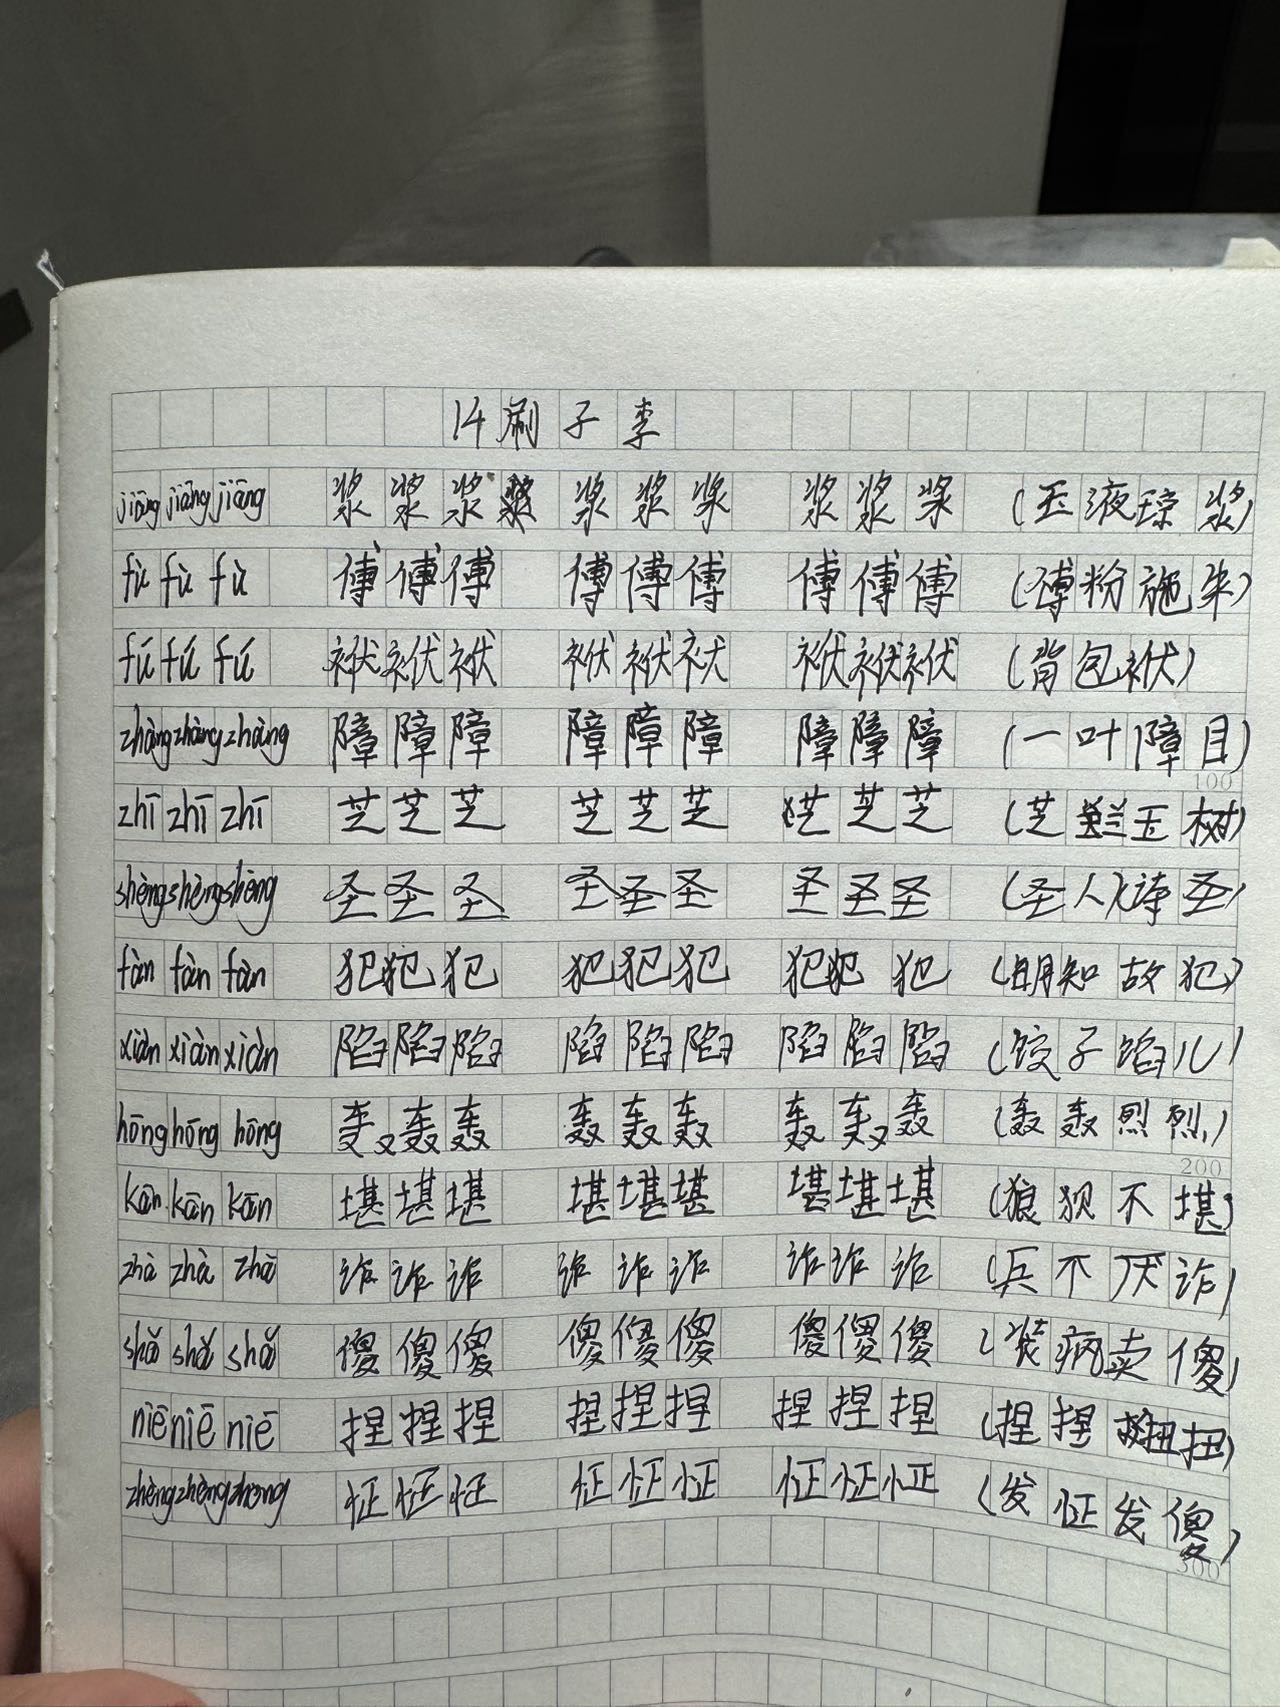 14刷子李
jiāng jiāng jiāng 浆浆浆 浆浆浆 浆浆浆 (玉液琼浆)
fù fù fù 傅傅傅 傅傅傅 傅傅傅 (傅粉施朱)
fú fú fú 袱袱袱 袱袱袱 袱袱袱 (背包袱)
zhàng zhàng zhàng 障障障 障障障 障障障 (一叶障目)
100
zhī zhī zhī 芝芝芝 芝芝芝 芝芝芝 (芝兰玉树)
shèng shèng shèng 圣圣圣 圣圣圣 圣圣圣 (圣人)(诗圣)
fàn fàn fàn 犯犯犯 犯犯犯 犯犯犯 (明知故犯)
xiàn xiàn xiàn 陷陷陷 陷陷陷 陷陷陷 (饺子馅儿)
hōng hōng hōng 轰轰轰 轰轰轰 轰轰轰 (轰轰烈烈)
200
kān kān kān 堪堪堪 堪堪堪 堪堪堪 (狼狈不堪)
zhà zhà zhà 诈诈诈 诈诈诈 诈诈诈 (兵不厌诈)
shǎ shǎ shǎ 傻傻傻 傻傻傻 傻傻傻 (装疯卖傻)
niē niē niē 捏捏捏 捏捏捏 捏捏捏 (捏捏扭扭)
zhèng zhèng zhèng 怔怔怔 怔怔怔 怔怔怔 (发怔发傻)
300